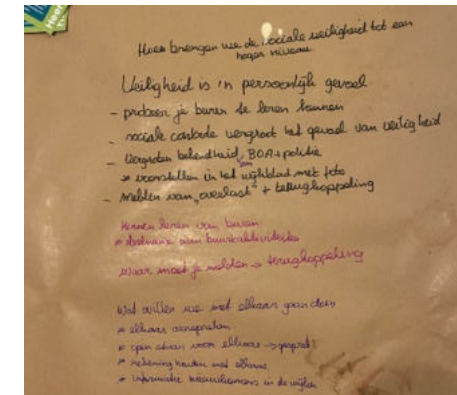 Hoe brengen we de sociale veiligheid tot een
hoger niveau
Veiligheid is 'n persoonlijk gevoel
- probeer je buren te leren kennen
- sociale controle vergroot het gevoel van veiligheid
- Vergroten bekendheid van BOA + politie
* voorstellen in het wijkblad met foto
- melden van "overlast" + terugkoppeling
Kennen leren van buren
* deelname aan buurtaktiviteiten
Waar moet je melden → terugkoppeling
Wat willen we met elkaar gaan doen
* elkaar aanspreken
* open staan voor elkaar → gesprek!
* rekening houden met elkaar
* informatie nieuwkomers in de wijken